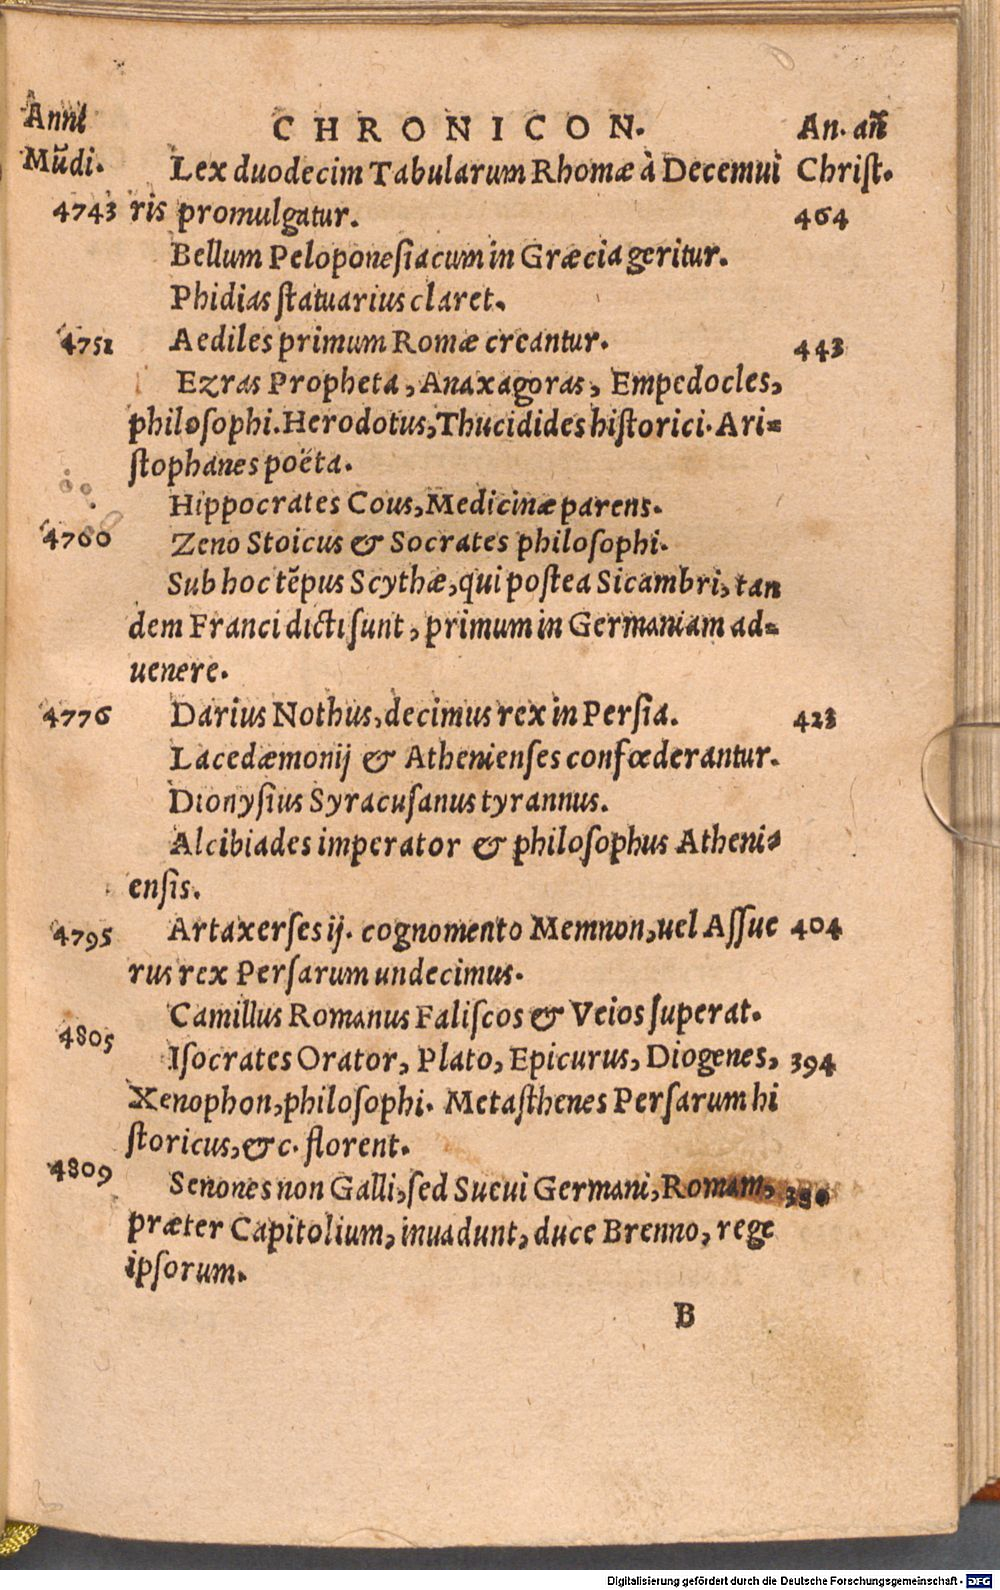 Anni CHRONICON. An. añ
Mũdi. Lex duodecim Tabularum Rhomæ à Decemui Christ.
4743 ris promulgatur. 464
Bellum Peloponesiacum in Græcia geritur.
Phidias statuarius claret.
4751 Aediles primum Romæ creantur. 443
Ezras Propheta, Anaxagoras, Empedocles,
philosophi. Herodotus, Thucidides historici. Ari-
stophanes poëta.
Hippocrates Cous, Medicinæ parens.
4760 Zeno Stoicus & Socrates philosophi.
Sub hoc tẽpus Scythæ, qui postea Sicambri, tan
dem Franci dicti sunt, primum in Germaniam ad-
uenere.
4776 Darius Nothus, decimus rex in Persia. 423
Lacedæmonij & Athenienses confœderantur.
Dionysius Syracusanus tyrannus.
Alcibiades imperator & philosophus Atheni-
ensis.
4795 Artaxerses ij. cognomento Memnon, uel Assue 404
rus rex Persarum undecimus.
Camillus Romanus Faliscos & Veios superat.
4805 Isocrates Orator, Plato, Epicurus, Diogenes, 394
Xenophon, philosophi. Metasthenes Persarum hi
storicus, &c. florent.
4809 Senones non Galli, sed Sueui Germani, Romam,
præter Capitolium, inuadunt, duce Brenno, rege
ipsorum.
B
Digitalisierung gefördert durch die Deutsche Forschungsgemeinschaft - DFG